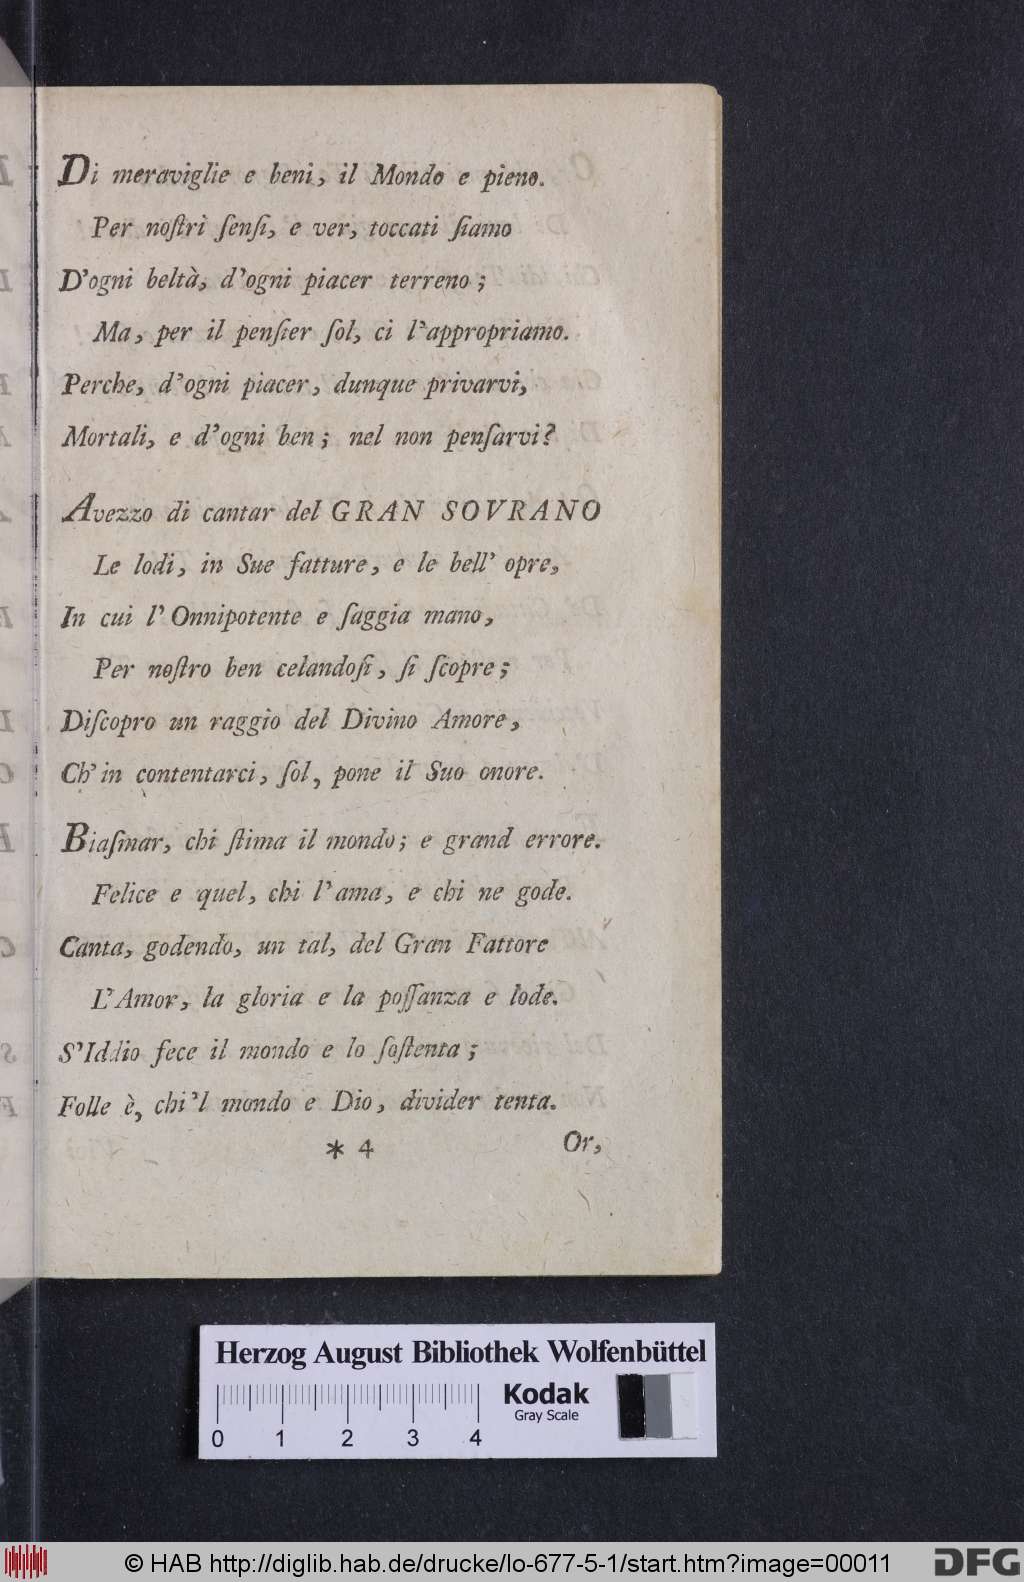 Di meraviglie e beni, il Mondo e pieno.
Per noſtri ſenſi, e ver, toccati ſiamo
D'ogni beltà, d'ogni piacer terreno;
Ma, per il penſier ſol, ci l'appropriamo.
Perche, d'ogni piacer, dunque privarvi,
Mortali, e d'ogni ben; nel non penſarvi?
Avezzo di cantar del GRAN SOVRANO
Le lodi, in Sue fatture, e le bell' opre,
In cui l' Onnipotente e ſaggia mano,
Per noſtro ben celandoſi, ſi ſcopre;
Diſcopro un raggio del Divino Amore,
Ch' in contentarci, ſol, pone il Suo onore.
Biaſmar, chi ſtima il mondo; e grand errore.
Felice e quel, chi l' ama, e chi ne gode.
Canta, godendo, un tal, del Gran Fattore
L'Amor, la gloria e la poſſanza e lode.
S'Iddio fece il mondo e lo ſoſtenta;
Folle è, chi'l mondo e Dio, divider tenta.
* 4 Or,
Herzog August Bibliothek Wolfenbüttel
Kodak
Gray Scale
0 1 2 3 4
© HAB http://diglib.hab.de/drucke/lo-677-5-1/start.htm?image=00011
DFG